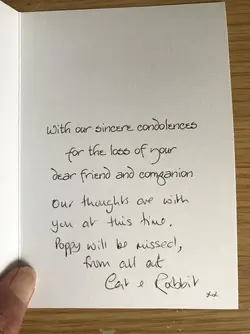 With our sincere condolences
for the loss of your
dear friend and companion
Our thoughts are with
you at this time.
Poppy will be missed,
from all at
Cat & Rabbit